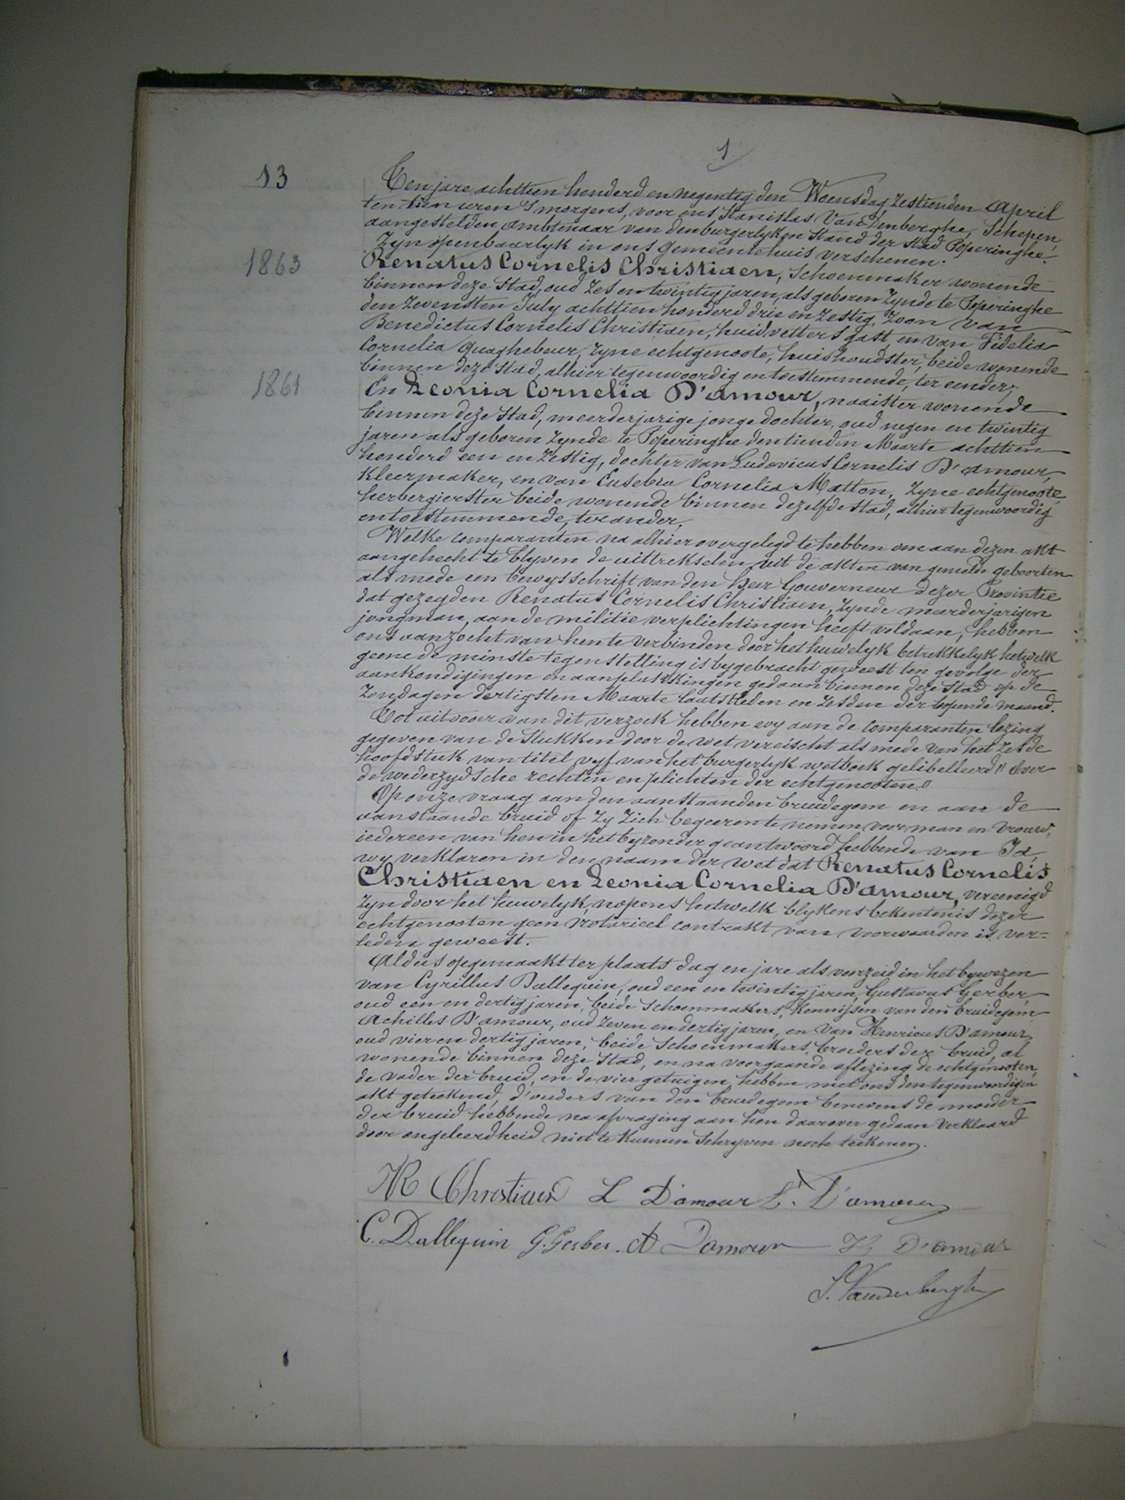 1
13
Ten jare achttien honderd en negentig den Woensdag zestienden April
ten tien uren 's morgens, voor ons Stanislas Vandenberghe, Schepen,
aangestelden Ambtenaar van den burgerlyken Stand der stad Poperinghe.
Zyn openbaarlyk in ons gemeentehuis verschenen.
1863
Renatus Cornelis Christiaen, Schoenmaker wonende
binnen deze Stad, oud zes en twintig jaren, als geboren zynde te Poperinghe
den zevensten July achttien honderd drie en zestig, zoon van
Benedictus Cornelis Christiaen, huidvetters gast, en van Fidelia
Cornelia Quaghebeur, zyne echtgenoote, huishoudster, beide wonende
binnen deze stad, alhier tegenwoordig en toestemmende, ter eender;
1861
En Leonia Cornelia D'amour, naaister wonende
binnen deze Stad, meerderjarige jonge dochter, oud negen en twintig
jaren als geboren zynde te Poperinghe den tienden Maarte achttien
honderd een en zestig, dochter van Ludovicus Cornelis D'amour,
kleermaker, en van Eusebia Cornelia Matton, zyne echtgenoote,
herbergierster beide wonende binnen dezelfde stad, alhier tegenwoordig
en toestemmende, ter ander,
Welke comparanten na alhier overgelegd te hebben om aan dezen akt
aangehecht te blyven de uittrekselen uit de akten van gemelde geboorten
als mede een bewysschrift van den heer Gouverneur dezer Provintie
dat gezegden Renatus Cornelis Christiaen, zynde meerderjarigen
jongman, aan de militie verplichtingen heeft voldaan, hebben
ons aanzocht van hen te verbinden door het huwelyk betrekkelyk hetwelk
geene de minste tegenstelling is bygebracht geweest ten gevolge der
aankondigingen en aanplakkingen gedaan binnen deze stad op de
Zondagen dertigsten Maarte laatstleden en zesden der loopende maand.
Tot uitvoer van dit verzoek hebben wy aan de comparanten lezing
gegeven van de stukken door de wet vereischt als mede van het zesde
hoofdstuk van titel vyf van het burgerlyk wetboek gelibelleerd "Over
de wederzydsche rechten en plichten der echtgenooten."
Op onze vraag aan den aanstaanden bruidegom en aan de
aanstaande bruid of zy zich begeeren te nemen voor man en vrouw,
iedereen van hen in het byzonder geantwoord hebbende van Ja,
wy verklaren in den naam der wet dat Renatus Cornelis
Christiaen en Leonia Cornelia D'amour, vereenigd
zyn door het huwelyk, nopens hetwelk blykens bekentenis dezer
echtgenooten geen Notarieel contrakt van voorwaarden is ver=
leden geweest.
Aldus opgemaakt ter plaats dag en jare als voorzeid in het bywezen
van Cyrillus Dallequin, oud een en twintig jaren, Gustavus Gerber,
oud een en dertig jaren, beide Schoenmakers, kennissen van den bruidegom
Achilles D'amour, oud zeven en dertig jaren, en van Henricus D'amour,
oud vier en dertig jaren, beide schoenmakers, broeders der bruid, al
wonende binnen deze Stad, en na voorgaande aflezing de echtgenooten,
de vader der bruid, en de vier getuigen hebben met ons den tegenwoordigen
akt geteekend, d'ouders van den bruidegom benevens de moeder
der bruid hebbende na afvraging aan hen daarover gedaan verklaard
door ongeleerdheid niet te kunnen schryven noch teekenen.
R Christiaen L D'amour L. D'amour
C. Dallequin G. Gerber. A D'amour H D'amour
S. Vandenberghe